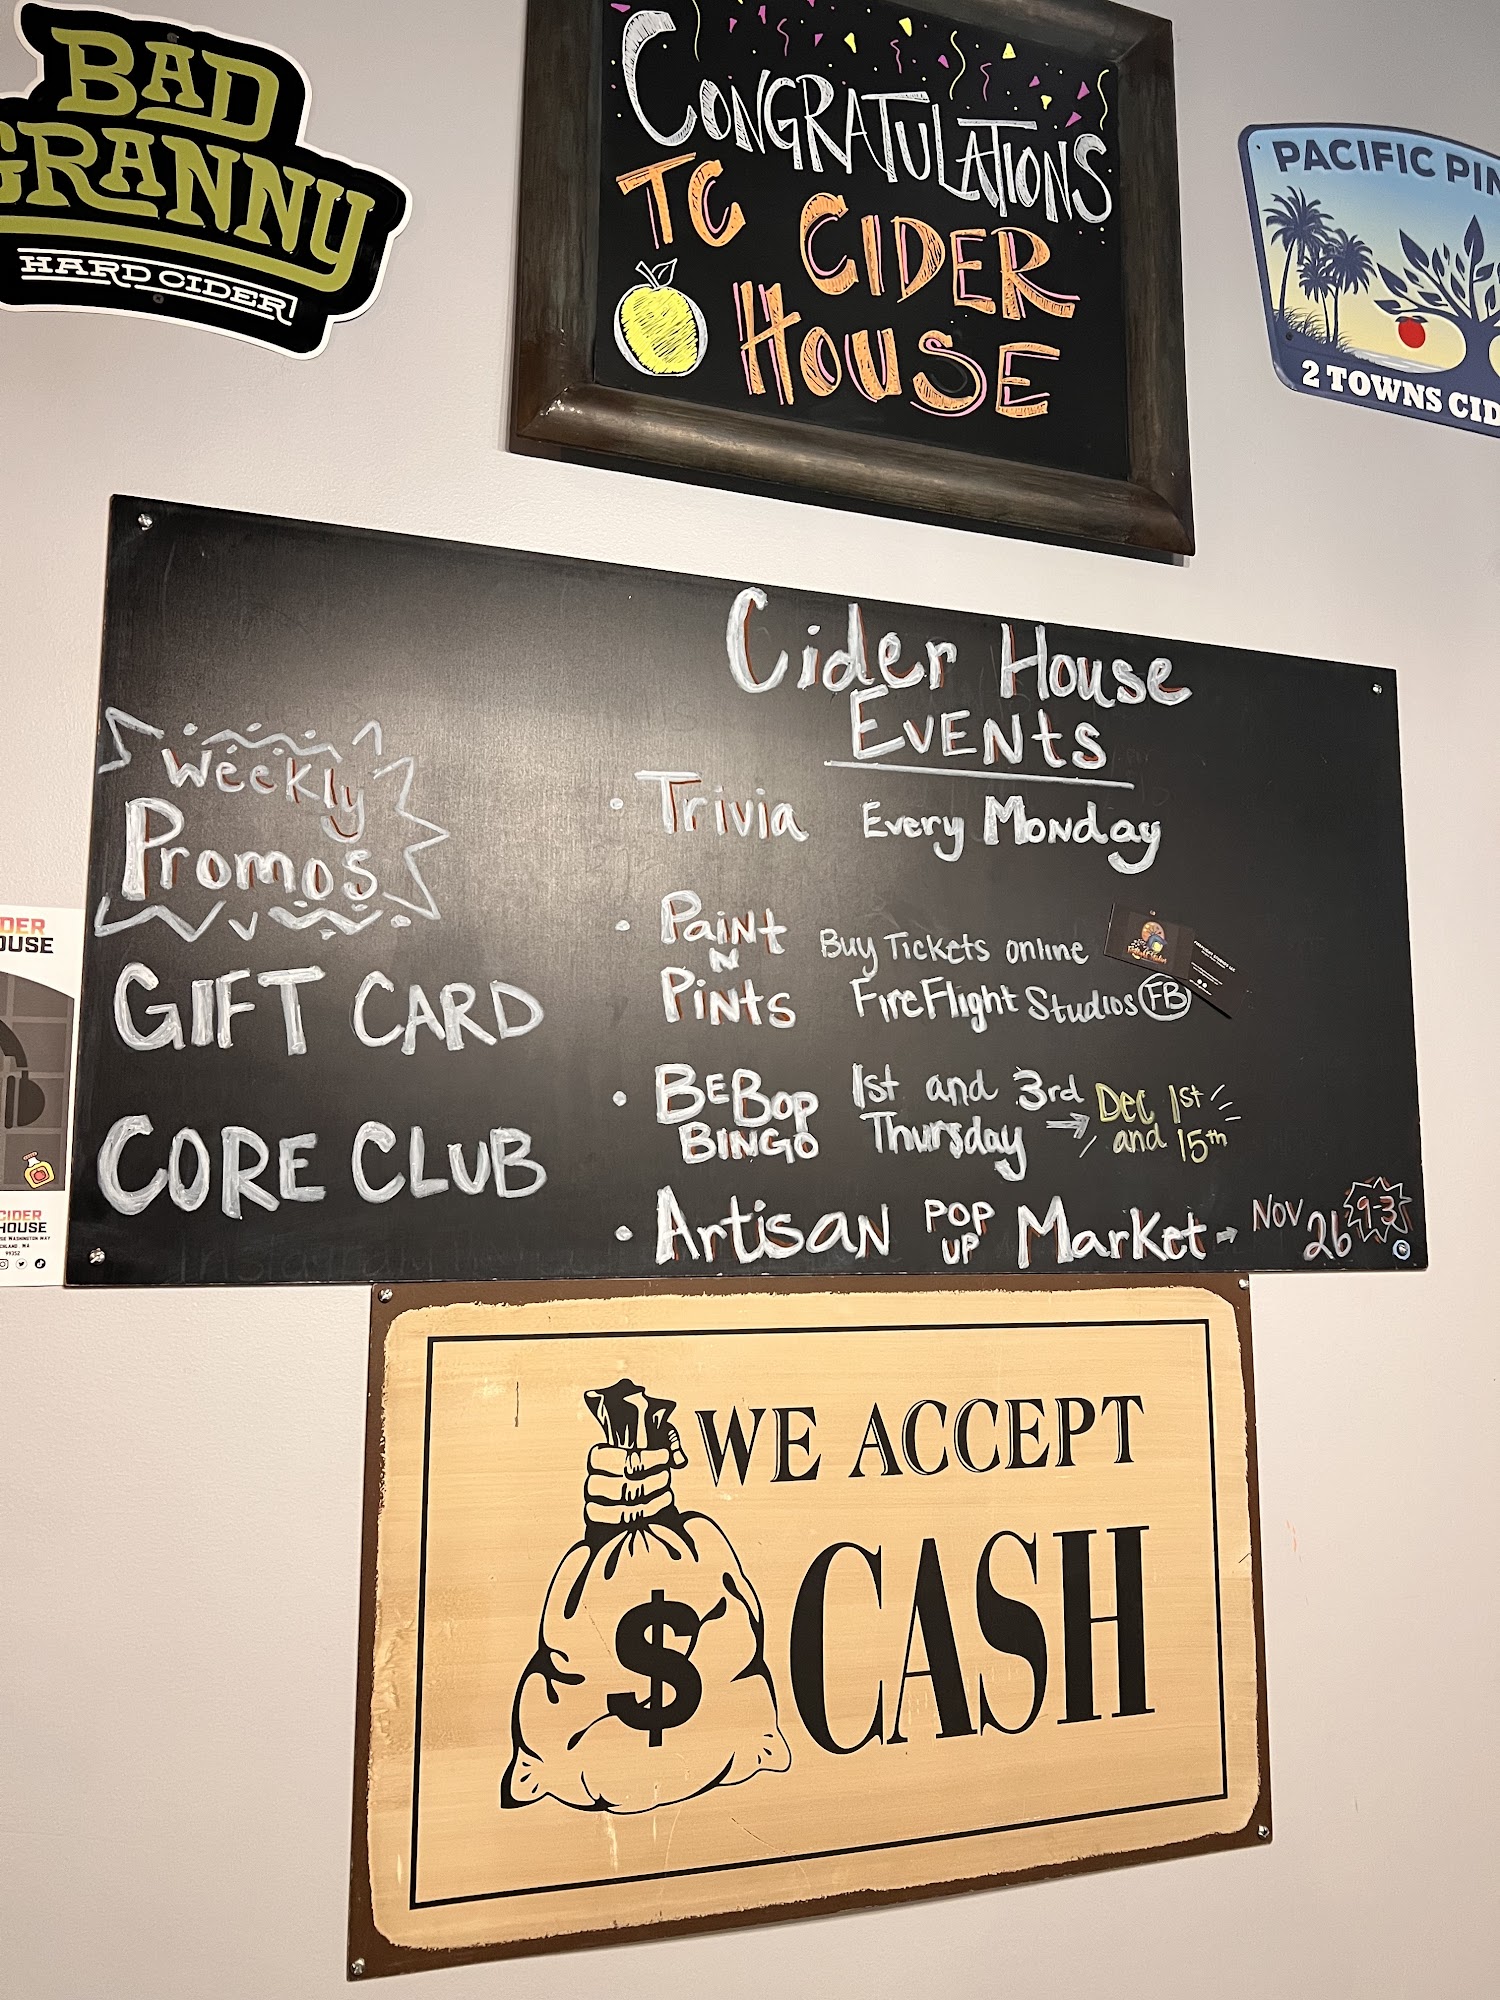 BAD
GRANNY
HARD CIDER
CONGRATULATIONS
TC CIDER
HOUSE
PACIFIC PIN
2 TOWNS CID
Cider House
EVENts
Weekly
Promos
GIFT CARD
CORE CLUB
• Trivia Every Monday
• PaiNt
N
PiNts
Buy Tickets online
FireFlight Studios FB
• BEBop
BINGO
1st and 3rd
Thursday → Dec 1st
and 15th
• ArtisaN POP
UP Market → NOV
26 9-3
DER
OUSE
CIDER
HOUSE
99352
WE ACCEPT
$ CASH